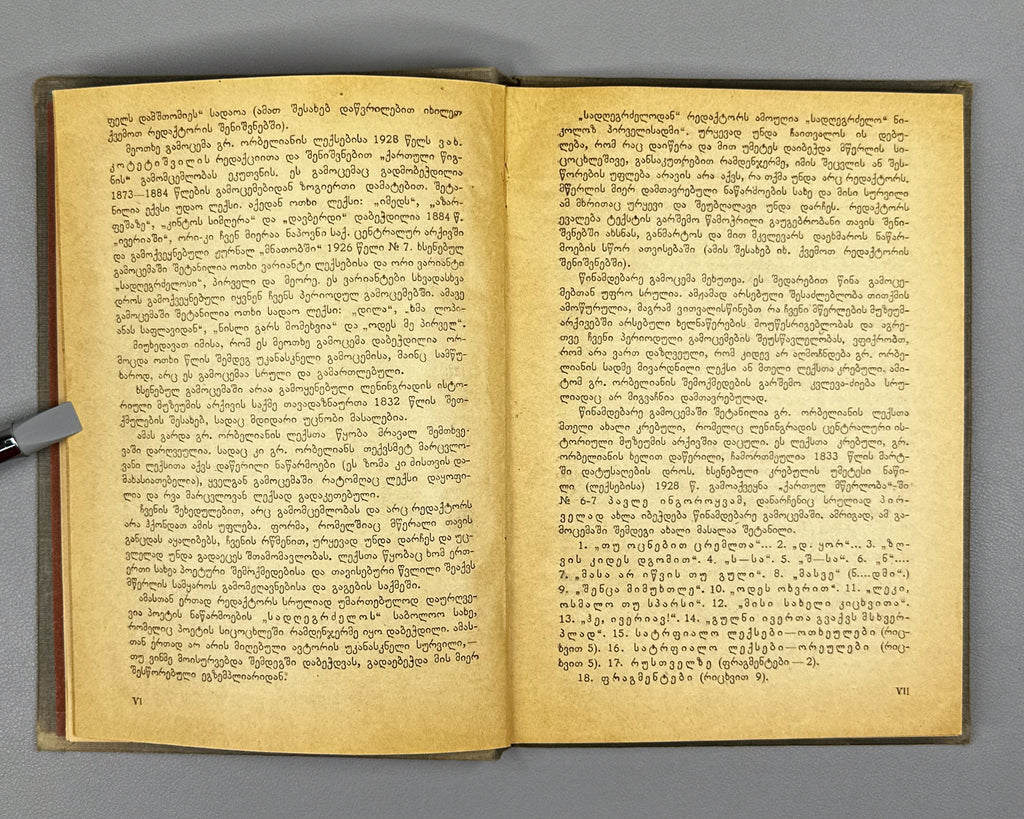 ფელს დამშთომიეს“ სადაოა (ამათ შესახებ დაწვრილებით იხილეთ
ქვემოთ რედაქტორის შენიშვნებში).
მეოთხე გამოცემა გრ. ორბელიანის ლექსებისა 1928 წელს ვახ.
კოტეტიშვილის რედაქციითა და შენიშვნებით „ქართული წიგ-
ნის“ გამომცემლობას ეკუთვნის. ეს გამოცემაც გადმობეჭდილია
1873—1884 წლების გამოცემებიდან ზოგიერთი დამატებით. შეტა-
ნილია ექვსი უდაო ლექსი. აქედან ოთხი ლექსი: „იმედს“, „აზარ-
ფეშაზე“, „კინტოს სიმღერა“ და „დავბერდი“ დაბეჭდილია 1884 წ.
„ივერიაში“, ორი-კი ჩვენ მიერაა ნაპოვნი საქ. ცენტრალურ არქივში
და გამოქვეყნებული ჟურნალ „მნათობში“ 1926 წელი № 7. ხსენებულ
გამოცემაში შეტანილია ოთხი ვარიანტი ლექსებისა და ორი ვარიანტი
„სადღეგრძელოსი“, პირველი და მეორე. ეს ვარიანტები სხვადასხვა
დროს გამოქვეყნებული იყვნენ ჩვენს პერიოდულ გამოცემებში. ამავე
გამოცემაში შეტანილია ოთხი სადაო ლექსი: „დილა“, „ხმა ლოპი-
ანას საფლავიდან“, „ნისლი გარს მომეხვია“ და „ოდეს მე პირველ“.
მიუხედავათ იმისა, რომ ეს მეოთხე გამოცემა დაბეჭდილია ორ-
მოცდა ოთხი წლის შემდეგ უკანასკნელი გამოცემისა, მაინც სამწუ-
ხაროდ, არც ეს გამოცემაა სრული და გამართლებული.
ხსენებულ გამოცემაში არაა გამოყენებული ლენინგრადის ისტო-
რიული მუზეუმის არქივის საქმე თავადაზნაურთა 1832 წლის შეთ-
ქმულების შესახებ, სადაც მდიდარი უცნობი მასალებია.
ამას გარდა გრ. ორბელიანის ლექსთა წყობა მრავალ შემთხვე-
ვაში დარღვეულია. სადაც კი გრ. ორბელიანს თექვსმეტ მარცვლო-
ვანი ლექსითა აქვს დაწერილი ნაწარმოები (ეს ზომა კი მისთვის და-
მახასიათებელია), ყველგან გამოცემაში რატომღაც ლექსი დაყოფი-
ლია და რვა მარცვლოვან ლექსად გადაკეთებული.
ჩვენის შეხედულებით, არც გამომცემლობას და არც რედაქტორს
არა ჰქონდათ ამის უფლება. ფორმა, რომელშიაც მწერალი თავის
განცდას აყალიბებს, ჩვენის რწმენით, ურყევად უნდა დარჩეს და უც-
ვლელად უნდა გადაეცეს შთამომავლობას. ლექსთა წყობაც ხომ ერთ-
ერთი სახეა პოეტური შემოქმედებისა და თავისებური წვლილი შეაქვს
მწერლის სამყაროს გამომჟღავნებისა და გაგების საქმეში.
ამასთან ერთად რედაქტორს სრულიად უმართებულოდ დაურღვე-
ვია პოეტის ნაწარმოების „სადღეგრძელოს“ საბოლოო სახე,
რომელიც პოეტის სიცოცხლეში რამდენჯერმე იყო დაბეჭდილი. ამას-
თან ერთად არ არის მიღებული ავტორის უკანასკნელი სურვილი,—
თუ ვინმე მოისურვებდა შემდეგში დაბეჭდვას, გადაებეჭდა მის მიერ
შესწორებული ეგზემპლიარიდან.
VI
„სადღეგრძელოდან“ რედაქტორს ამოუღია „სადღეგრძელო“ ნი-
კოლოზ პირველისადმი“. ურყევად უნდა ჩაითვალოს ის დებუ-
ლება, რომ რაც დაიწერა და მით უმეტეს დაიბეჭდა მწერლის სი-
ცოცხლეშივე, განსაკუთრებით რამდენჯერმე, იმის შეცვლის ან შეს-
წორების უფლება არავის არა აქვს, რა თქმა უნდა არც რედაქტორს.
მწერლის მიერ დამთავრებული ნაწარმოების სახე და მისი სურვილი
ამ მხრითაც ურყევი და შეუბღალავი უნდა დარჩეს. რედაქტორს
ევალება ტექსტის გარშემო წამოჭრილი გაუგებრობანი თავის შენი-
შვნებში ახსნას, განმარტოს და მით მკვლევარს დაეხმაროს ნაწარ-
მოების სწორ ათვისებაში (ამის შესახებ იხ. ქვემოთ რედაქტორის
შენიშვნებში).
წინამდებარე გამოცემა მეხუთეა. ეს შედარებით წინა გამოცე-
მებთან უფრო სრულია. ამჟამად არსებული შესაძლებლობა თითქმის
ამოწურულია, მაგრამ ვითვალისწინებთ რა ჩვენი მწერლების მუზეუმ-
არქივებში არსებული ხელნაწერების მოუწესრიგებლობას და აგრე-
თვე ჩვენი პერიოდული გამოცემების შეუსწავლელობას, ვფიქრობთ,
რომ არა ვართ დაზღვეული, რომ კიდევ არ აღმოჩნდება გრ. ორბე-
ლიანის სადმე მივარდნილი ლექსი ან მთელი ლექსთა კრებული. ამი-
ტომ გრ. ორბელიანის შემოქმედების გარშემო კვლევა-ძიება სრუ-
ლიადაც არ მიგვაჩნია დამთავრებულად.
წინამდებარე გამოცემაში შეტანილია გრ. ორბელიანის ლექსთა
მთელი ახალი კრებული, რომელიც ლენინგრადის ცენტრალური ის-
ტორიული მუზეუმის არქივშია დაცული. ეს ლექსთა კრებული, გრ.
ორბელიანის ხელით დაწერილი, ჩამორთმეულია 1833 წლის მარტ-
ში დატუსაღების დროს. ხსენებული კრებულის უმეტესი ნაწი-
ლი (ლექსებისა) 1928 წ. გამოაქვეყნა „ქართულ მწერლობა“-ში
№ 6-7 პავლე ინგოროყვამ, დანარჩენიც სრულიად პირ-
ველად ახლა იბეჭდება წინამდებარე გამოცემაში. ამრიგად, ამ გა-
მოცემაში შემდეგი ახალი მასალაა შეტანილი.
1. „თუ ოცნებით ცრემლთა“... 2. „დ. ყორ“... 3. „ზღ-
ვის კიდეს დგომით“. 4. „ს—სა“. 5. „შ—სა“. 6. „ნ“....
7. „მასა არ იწვის თუ გული“. 8. „მასვე“ (ნ....დმი“.)
9. „შენცა მიმუხთლე“. 10. „ოდეს ოხვრით“. 11. „ლეკი,
ოსმალო თუ სპარსი“. 12. „მისი სახელი კიცხვითა“.
13. „ჰე, ივერიავ!“. 14. „გულნი ივერთა გვაქვს მსხვერ-
პლად“. 15. სატრფიალო ლექსები—ოთხეულები (რიც-
ხვით 5). 16. სატრფიალო ლექსები—ორეულები (რიც-
ხვით 5). 17. რუსთველზე (ფრაგმენტები — 2).
18. ფრაგმენტები (რიცხვით 9).
VII